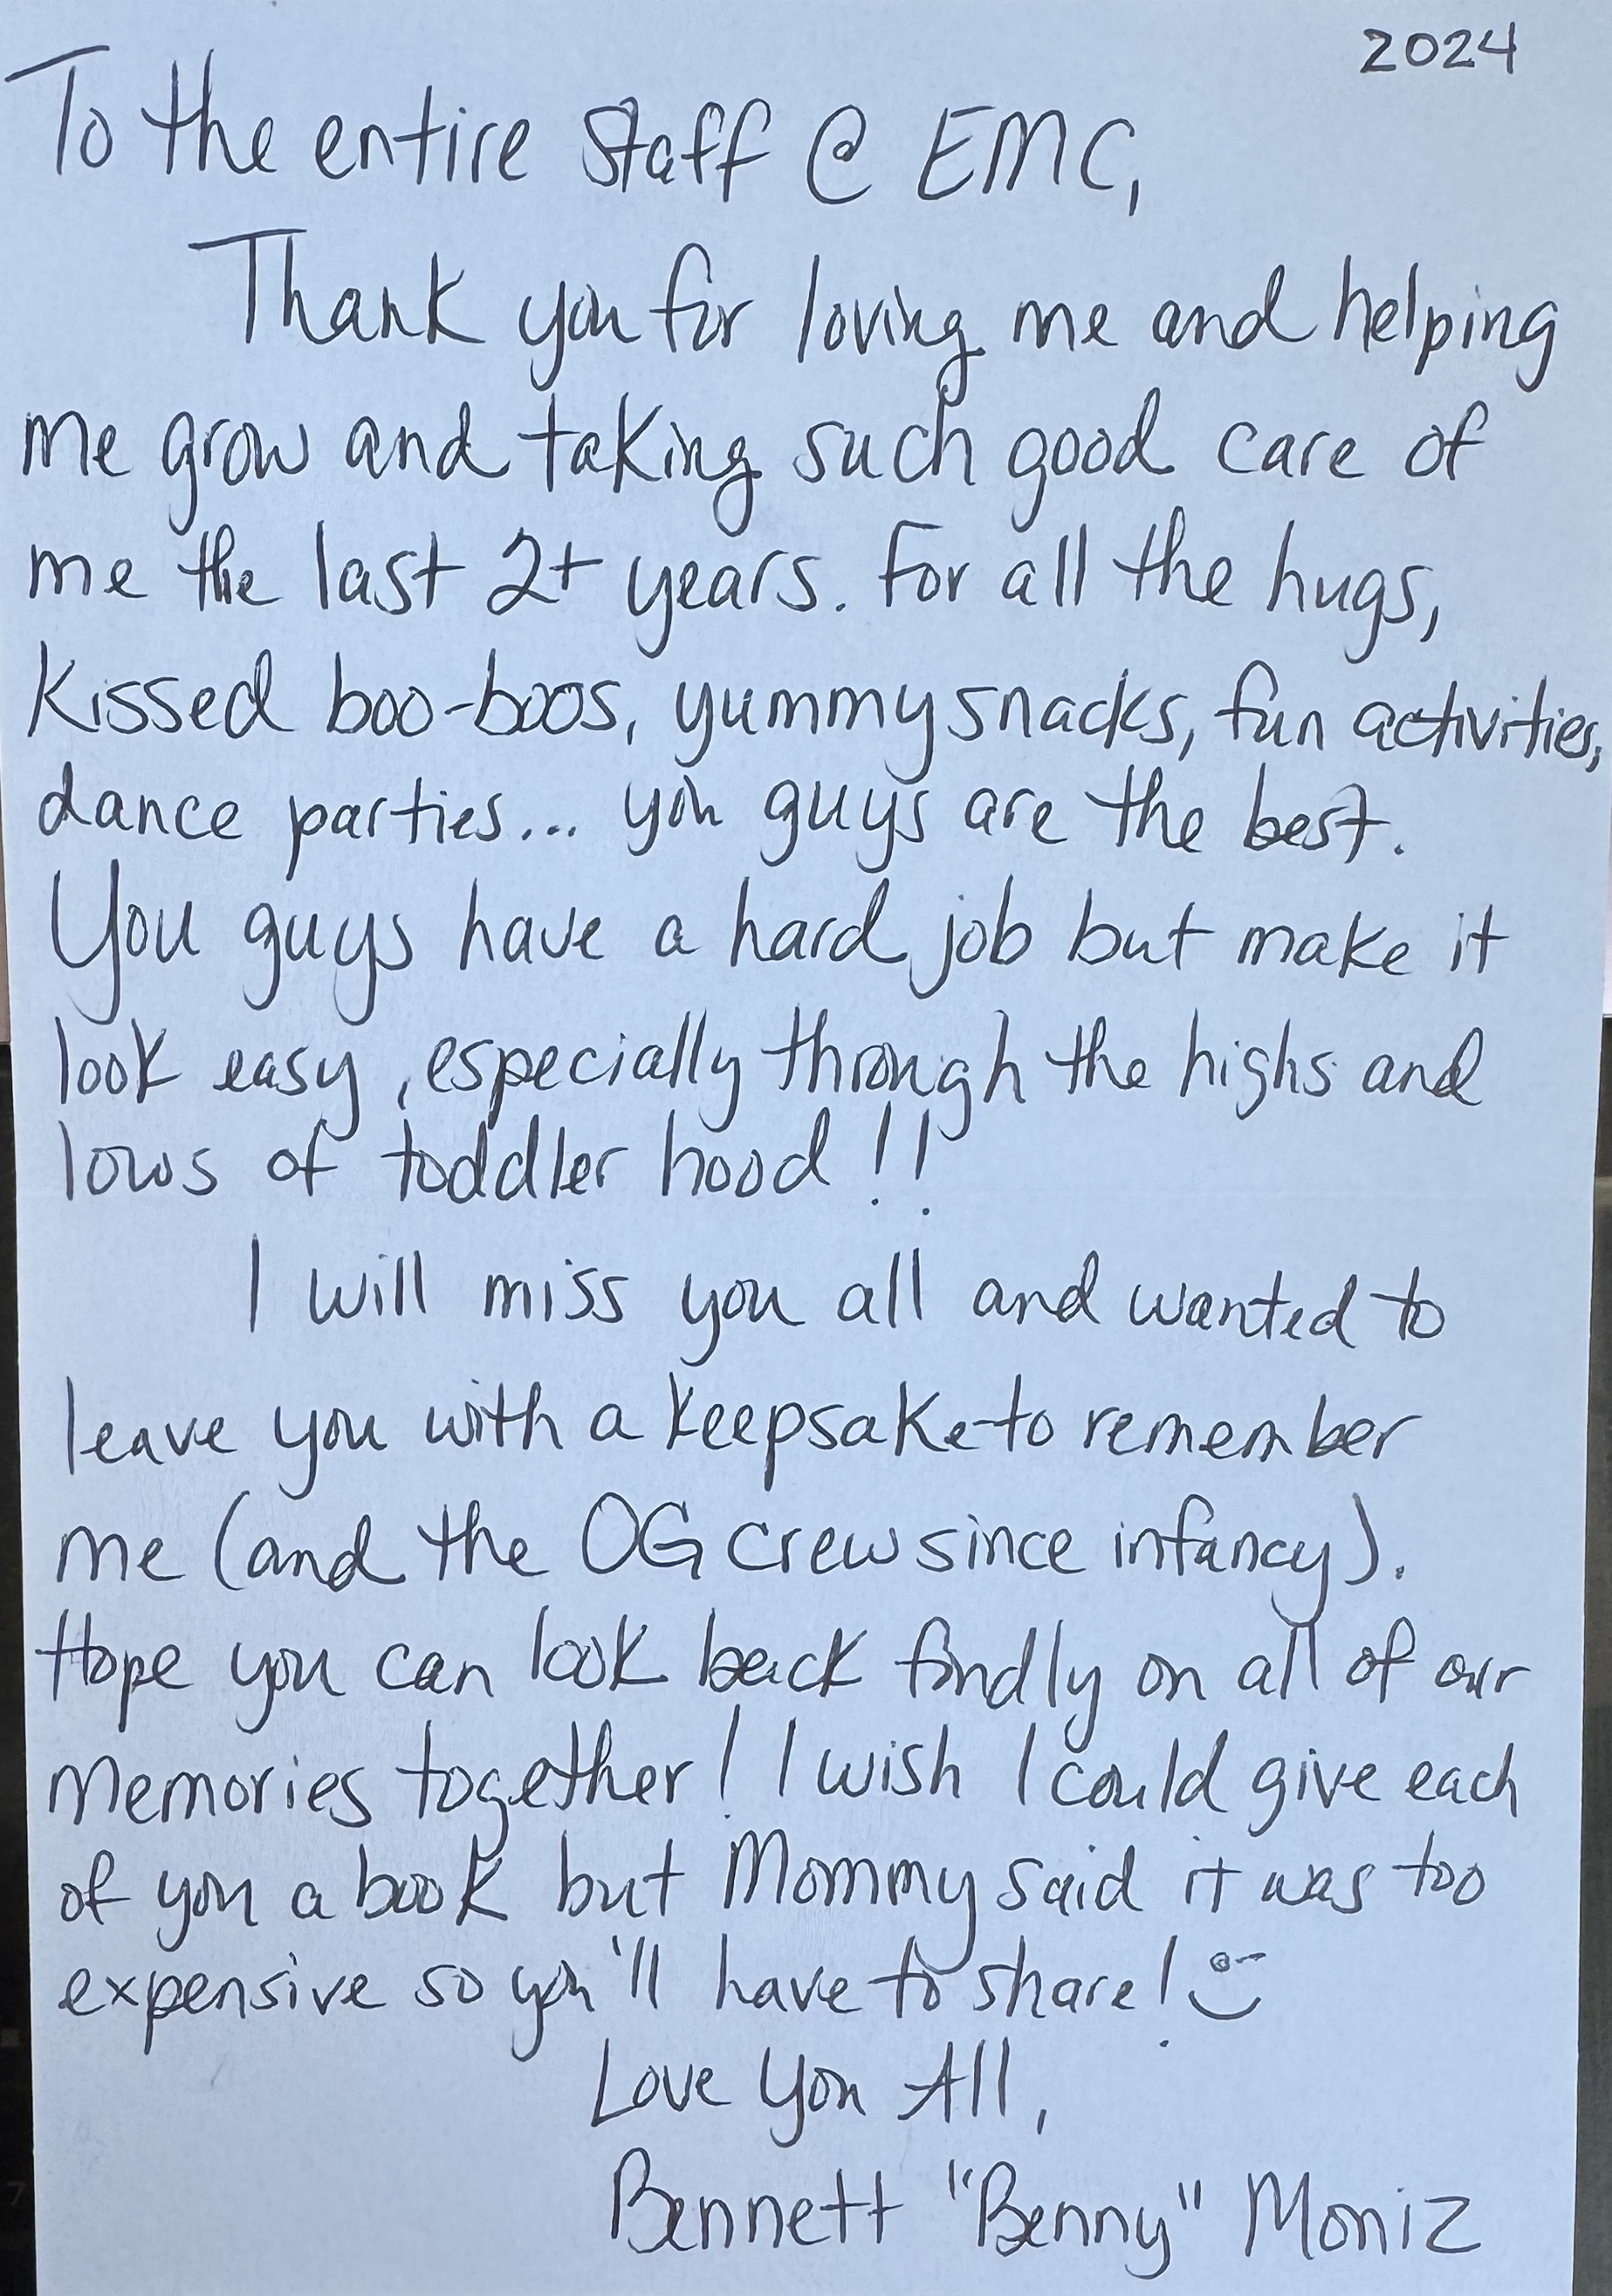 2024
To the entire Staff @ EMC,
Thank you for loving me and helping
me grow and taking such good care of
me the last 2+ years. For all the hugs,
Kissed boo-boos, yummy snacks, fun activities,
dance parties... you guys are the best.
You guys have a hard job but make it
look easy, especially through the highs and
lows of toddler hood!!
I will miss you all and wanted to
leave you with a keepsake to remember
me (and the OG crew since infancy).
Hope you can look back fondly on all of our
memories together! I wish I could give each
of you a book but Mommy said it was too
expensive so you'll have to share!
Love You All,
Bennett "Benny" Moniz